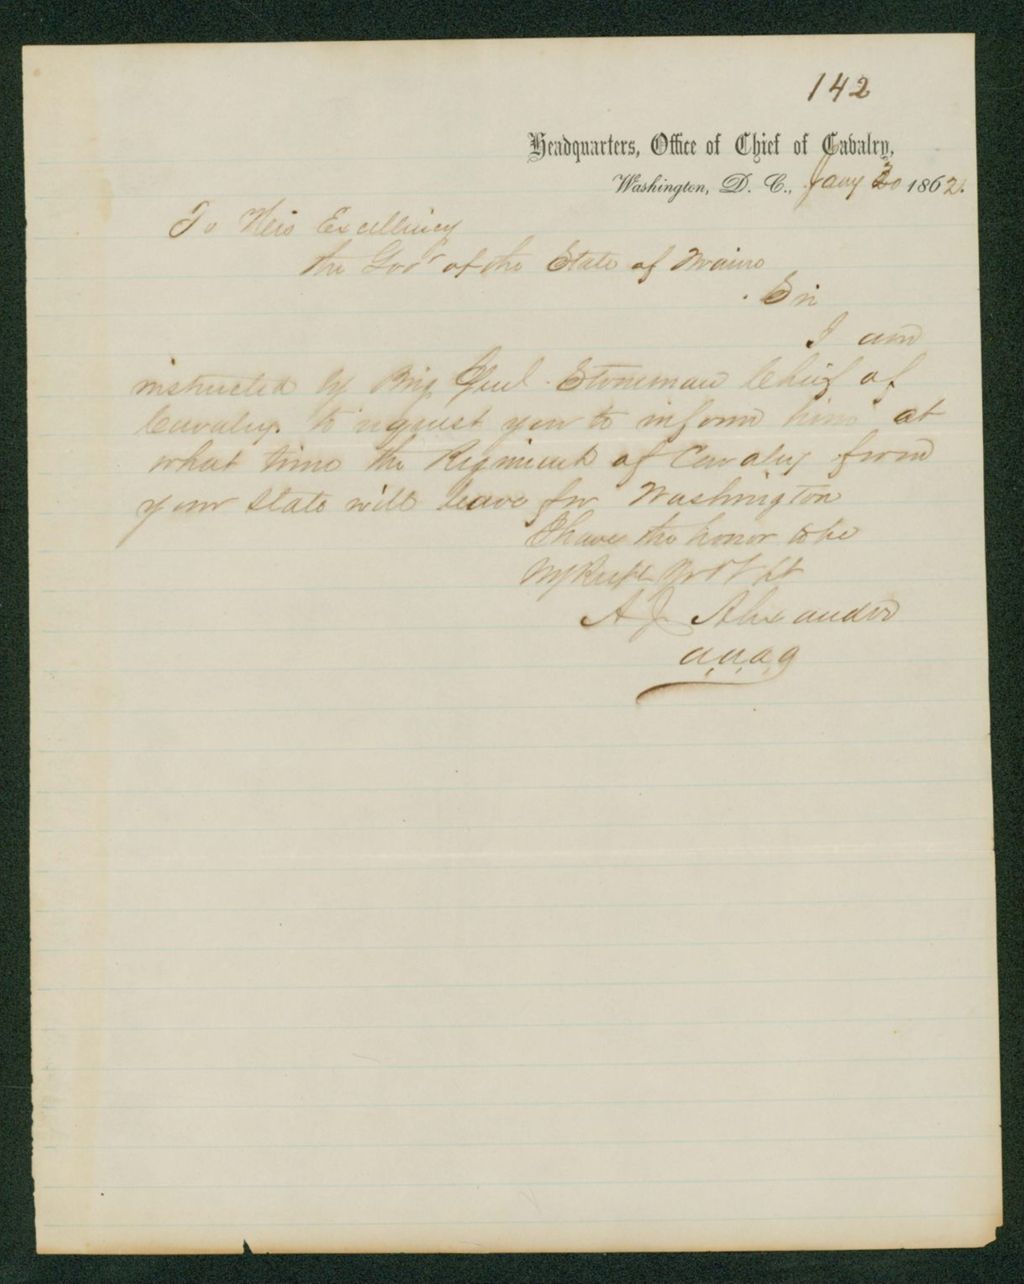 142
Headquarters, Office of Chief of Cavalry,
Washington, D. C., Jany 30 1862.
To His Excellency
the Govr of the State of Maine
Sir
I am
instructed by Brig Genl Stoneman Chief of
Cavalry. to request you to inform him at
what time the Regiment of Cavalry from
your State will leave for Washington
I have the honor to be
Vy Respt
A J Alexander
a.a.a.g